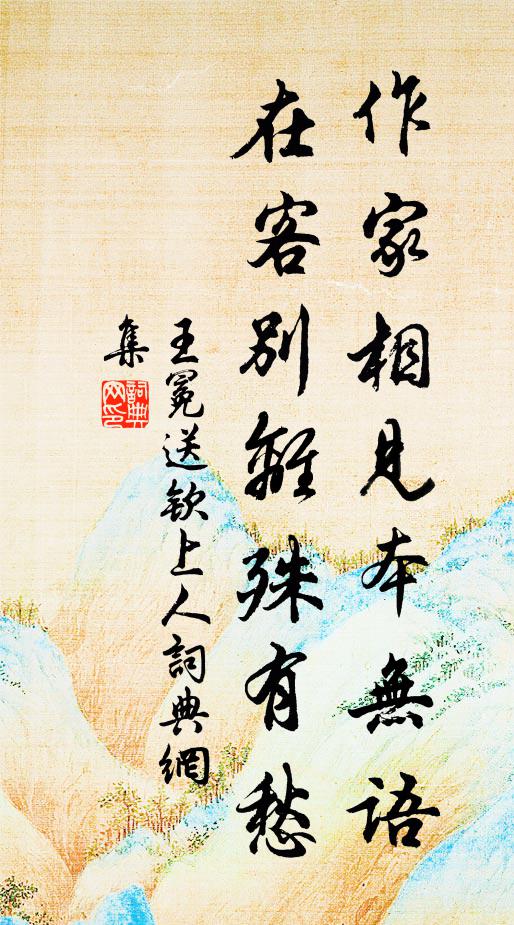 作家相見本無語
在客別離殊有愁
王冕送欽上人詞典網
集
詞典
网印